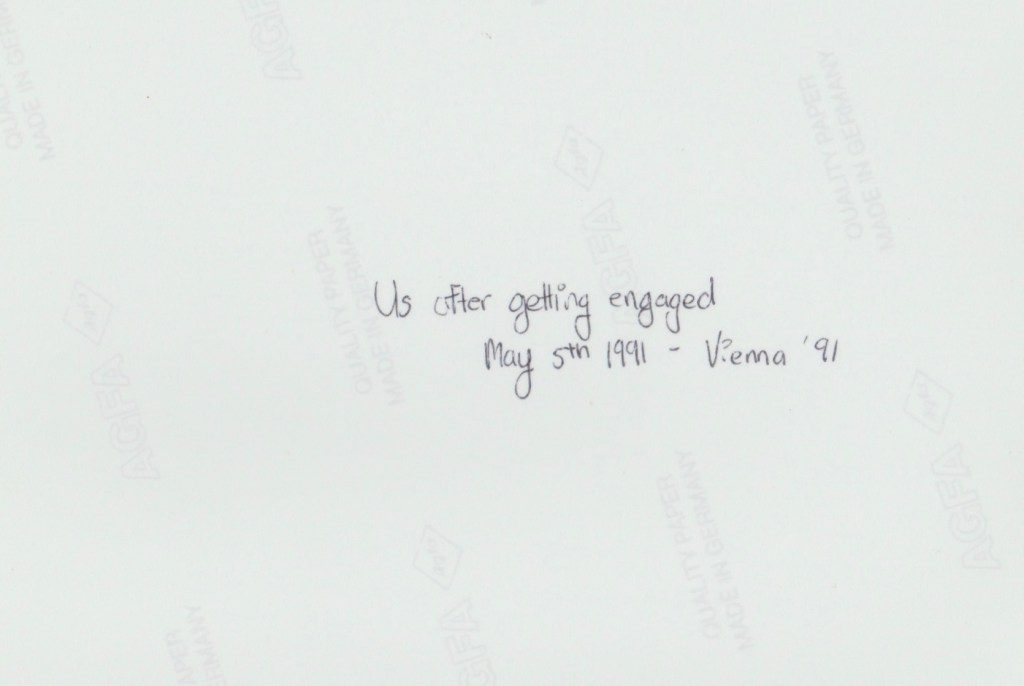 Us after getting engaged
May 5th 1991 - Vienna '91
QUALITY PAPER
MADE IN GERMANY
AGFA
AGFA
QUALITY PAPER
MADE IN GERMANY
AGFA
QUALITY PAPER
MADE IN GERMANY
AGFA
QUALITY PAPER
MADE IN GERMANY
AGFA
PAPER
GERMANY